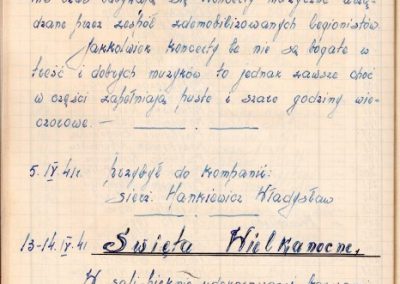 odbywają się koncerty muzyczne urzą-
dzane przez zespół zdemobilizowanych legionistów.
Jakkolwiek koncerty te nie są bogate w
treść i dobrych muzyków to jednak zawsze choć
w części zapełniają puste i szare godziny wie-
czorowe. —
5. IV. 41r. przybył do kompanii:
sierż. Hankiewicz Władysław
13-14. IV. 41 Święta Wielkanocne.
W sali pięknie udekorowanej